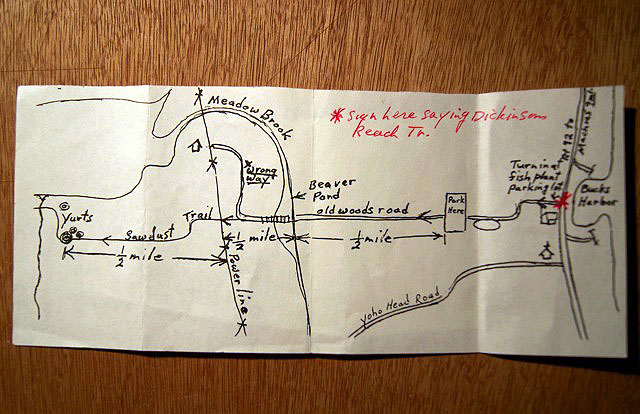 Meadow Brook
* Sign here saying Dickinsons
Reach Tr.
Machias 2ml
Turn in at
fish plant
parking lot
Bucks
Harbor
* Wrong
way
Beaver
Pond
old woods road
Park
Here
Yurts
Trail
Sawdust
1/2 mile
1/2 mile
1/2 mile
Power line
Yoho Head Road